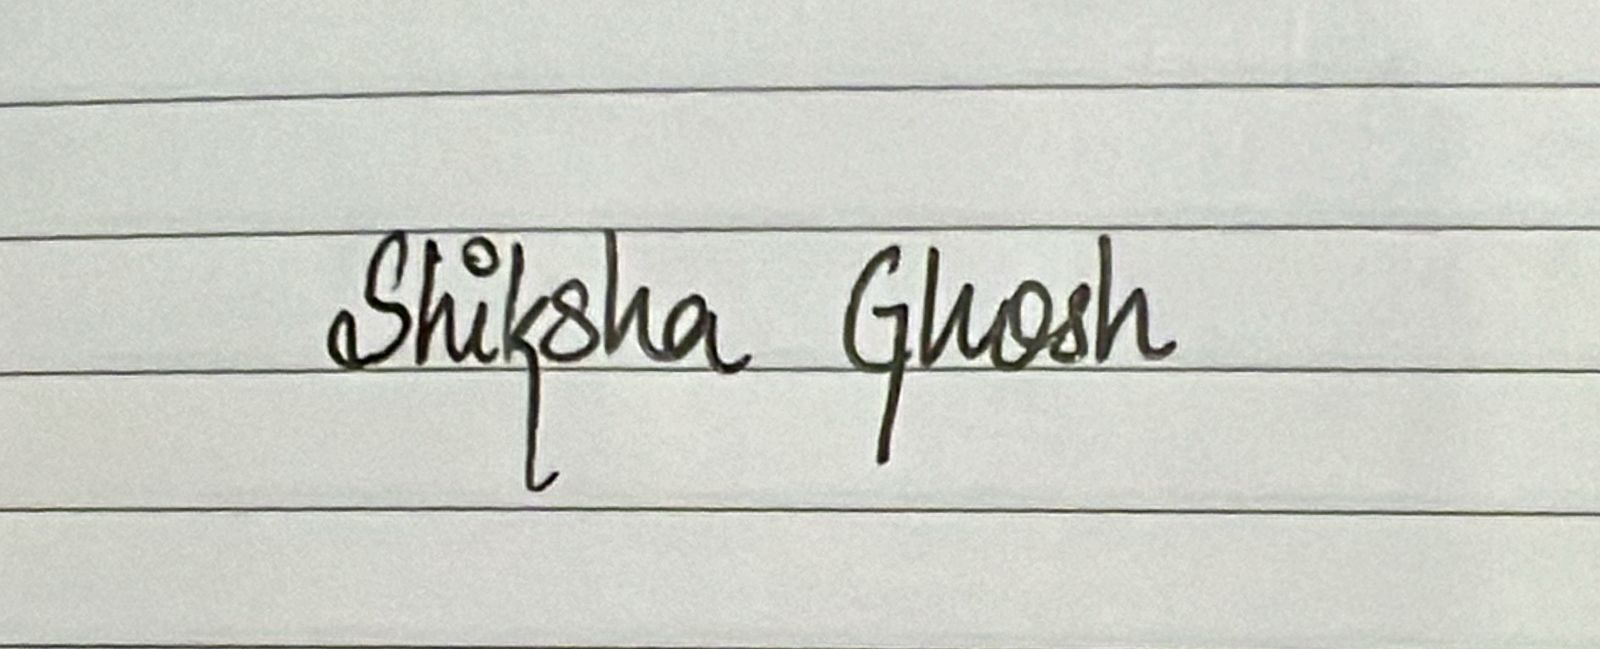 Shiksha Ghosh